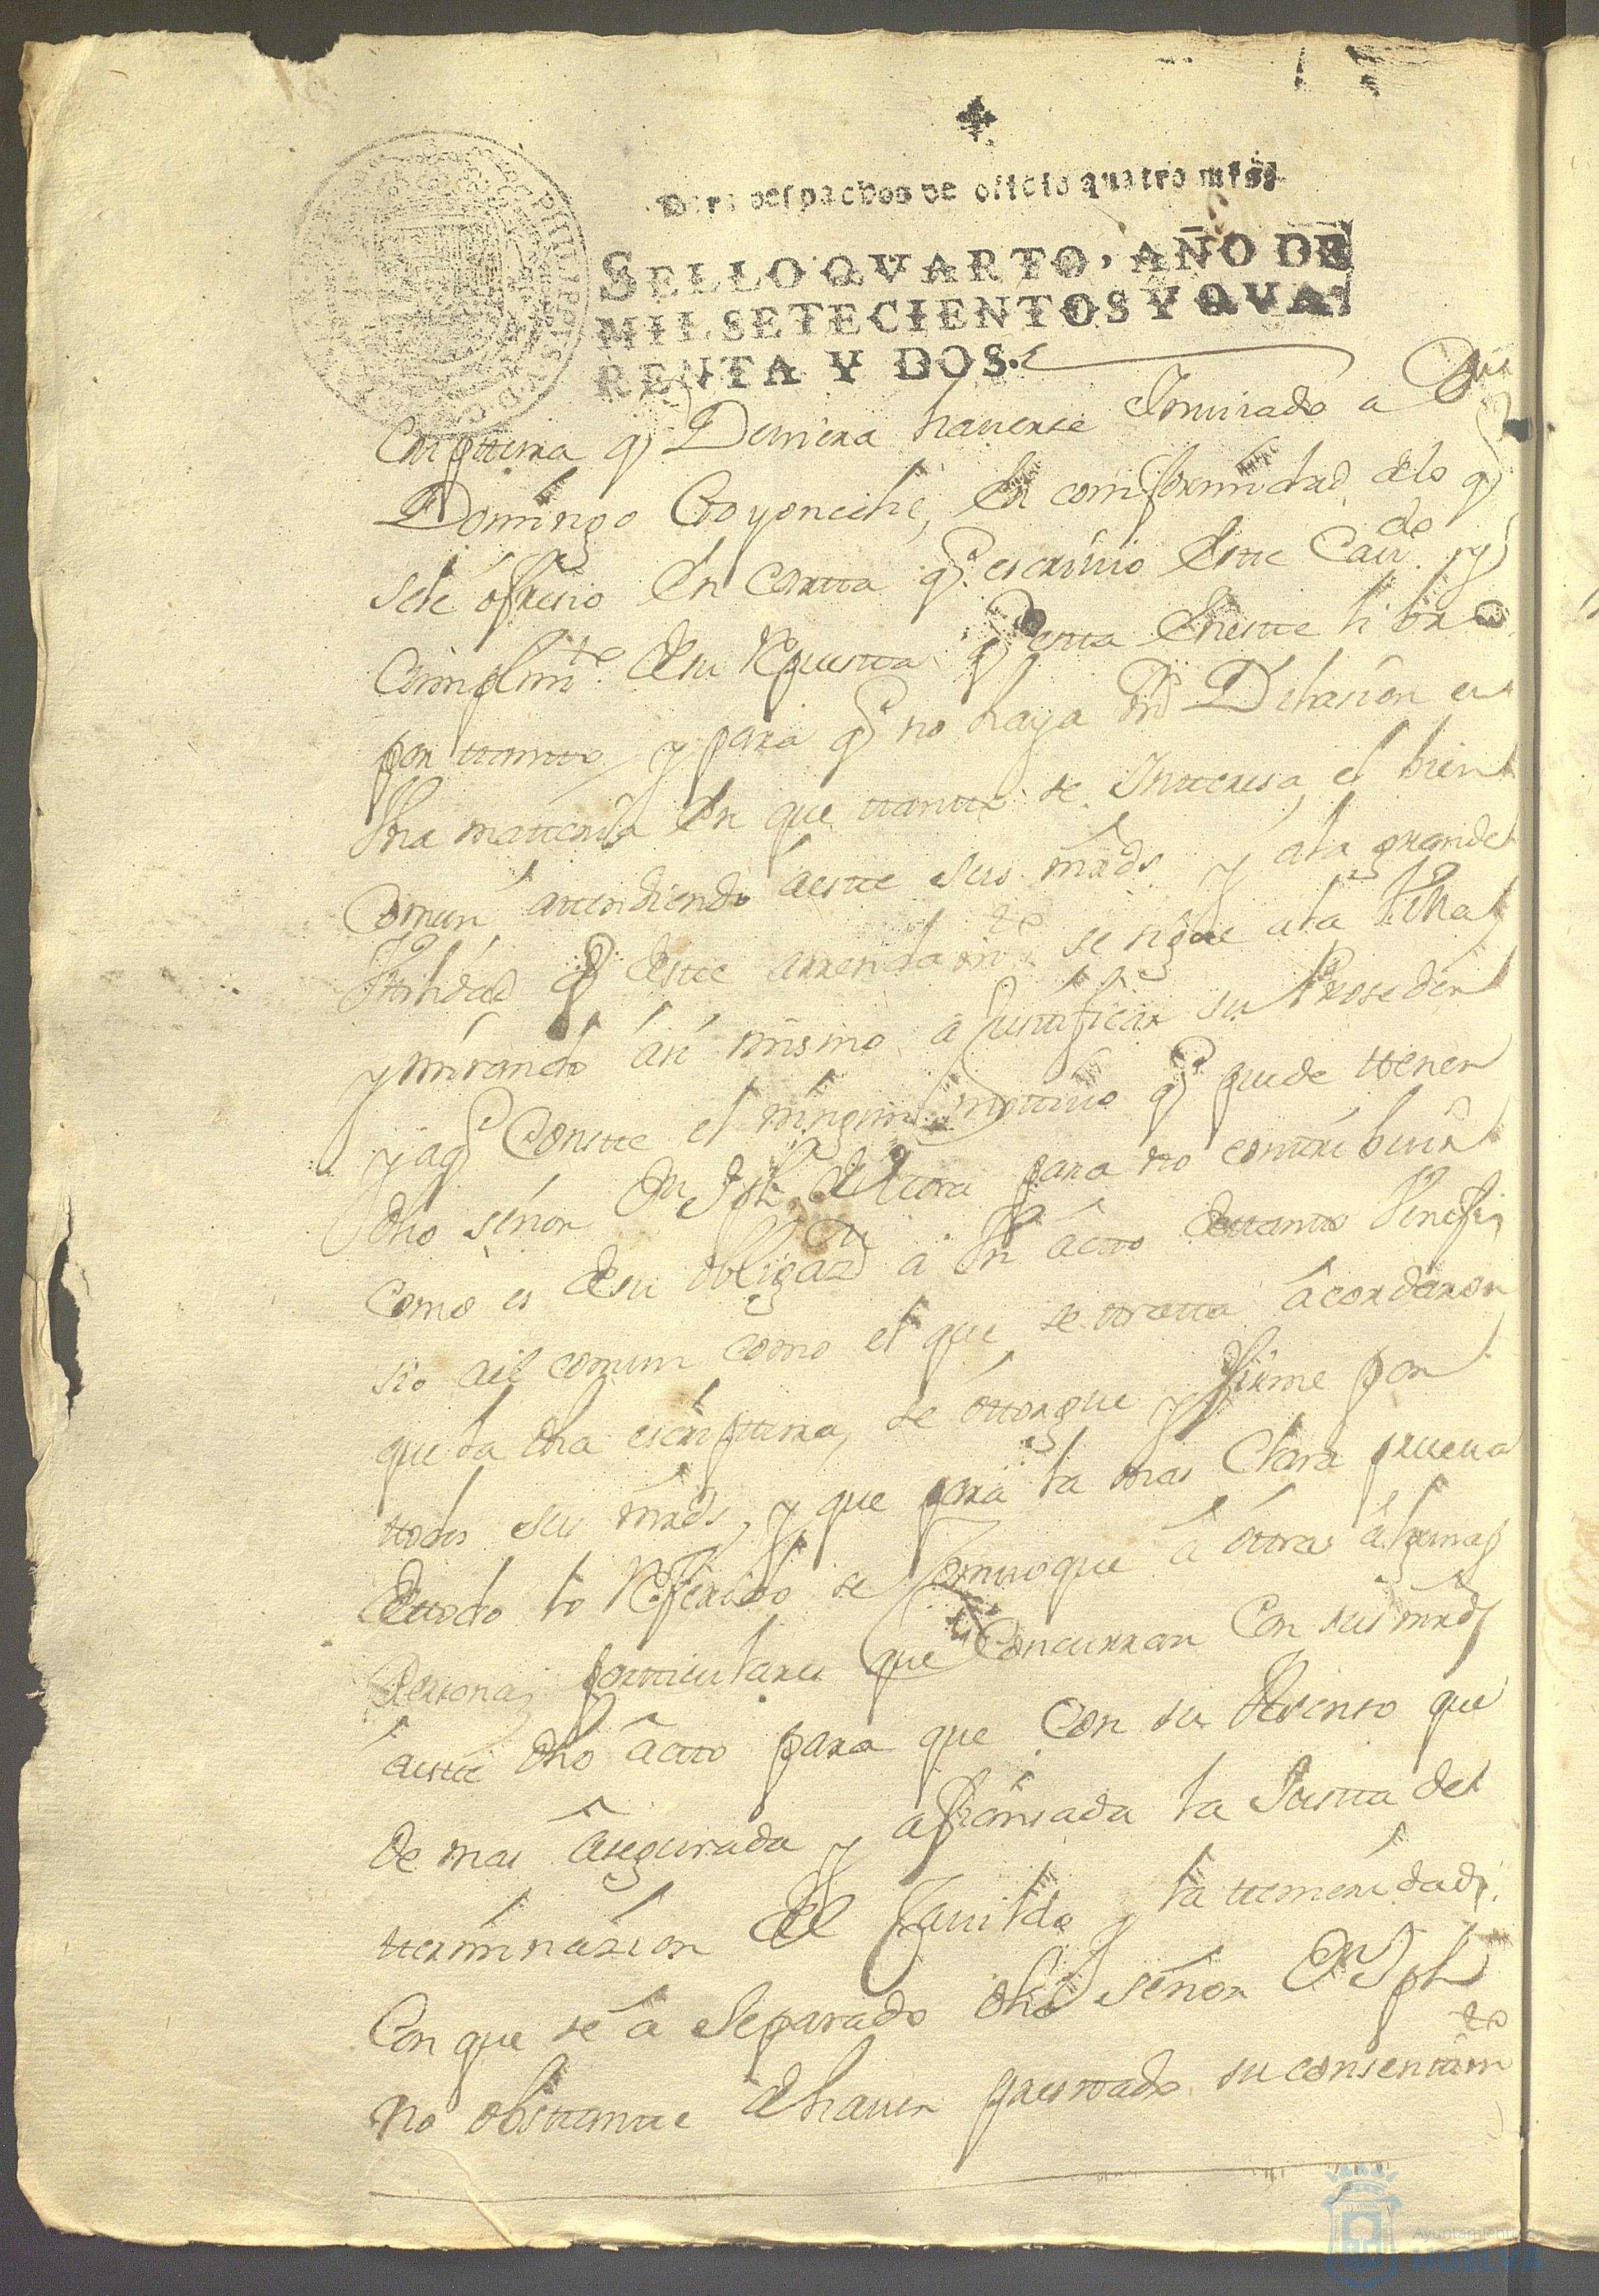 Para despachos de oficio quatro mrs.
SELLO QVARTO, AÑO DE
MIL SETECIENTOS Y QVA
RENTA Y DOS.
Criptura q Deviera haverse Imviado a Dn
Domingo Goyoneche, En comformidad delo q
sele ofresio En Cartta q escrivio Estte Cavdo y
Cumplimto desu Rpuestta q esta Enestte libro
por ttantto, y para q no haya mas Dilasion en
dha matteria En que ttantto se Intteresa el bien
Comun, attendiendo a estte sus mrds y ala grande
Utilidad q destte arrendamto se sigue ala Villa
y mirando asi mismo a Justtificar su Proseder
y a q Constte el ningun mottivo q pude ttener
dho señor Dn Jph de para no conttribuir
Como es desu obligazn a Un actto dettantto Venefi
sio al comun como el que se ttratta acordaron
que la dha escripttura, se ottorgue y firme por
ttodos sus mrds, y que para la mas Clara prueva
dettodo lo Referido se Comvoque a ottras algunas
Personas partticulares que Concurran Con sus mrds
a estte dho actto para que Con su Asenso que
de mas asegurada y afiansada la Justta de
tterminasion del Cavildo y la ttemeridad
Con que se a Separado dho señor Dn Jph
no obsttantte de haver presttado su consentimto
Ayuntamiento de
HUELVA